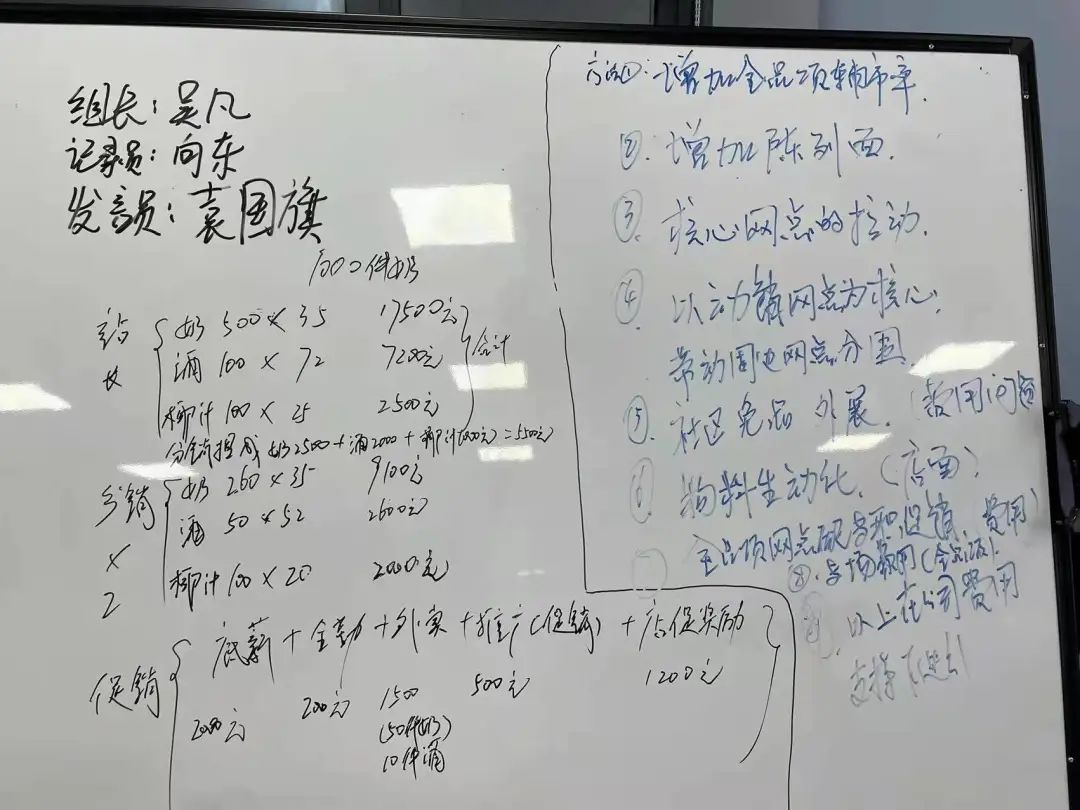 组长：吴凡
记录员：向东
发言员：袁国旗
1000件奶
站长
奶 500 × 35 17500元
酒 100 × 72 7200元
椰汁 100 × 25 2500元
合计
分销提成 奶2500 + 酒2000 + 椰汁1000元 = 5500元
分销 × 2
奶 260 × 35 9100元
酒 50 × 52 2600元
椰汁 100 × 20 2000元
促销
底薪 + 全勤 + 外案 + 推广(促销) + 店促奖励
2000元 200元 1500 500元 1200元
(50件奶)
10件酒
方法①：增加全品项铺市率.
②. 增加陈列面.
③. 核心网点的拉动.
④ 以动销网点为核心.
带动周边网点分围.
⑤. 社区免品 外展. (费用问题
⑥. 物料生动化. (店面).
全品项网点配专职促销. (费用)
⑧. 专场费用(全品项).
以上在公司费用
支持下